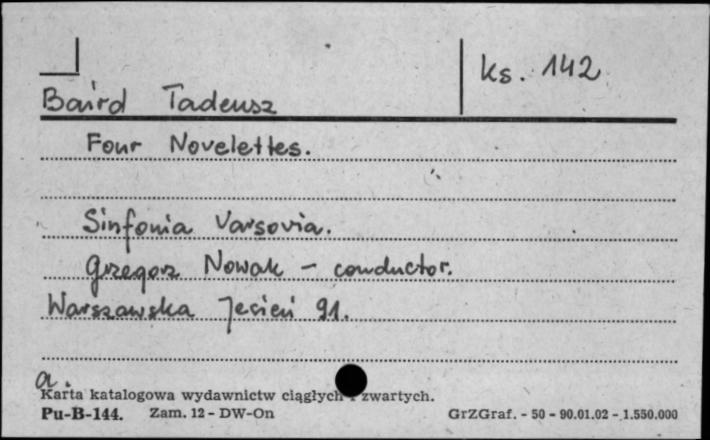 ks. 142
Baird Tadeusz
Four Novelettes.
Sinfonia Varsovia.
Grzegorz Nowak - conductor.
Warszawska Jesień 91.
a.
Karta katalogowa wydawnictw ciągłych i zwartych.
Pu-B-144. Zam. 12 - DW-On GrZGraf. - 50 - 90.01.02 - 1.550.000